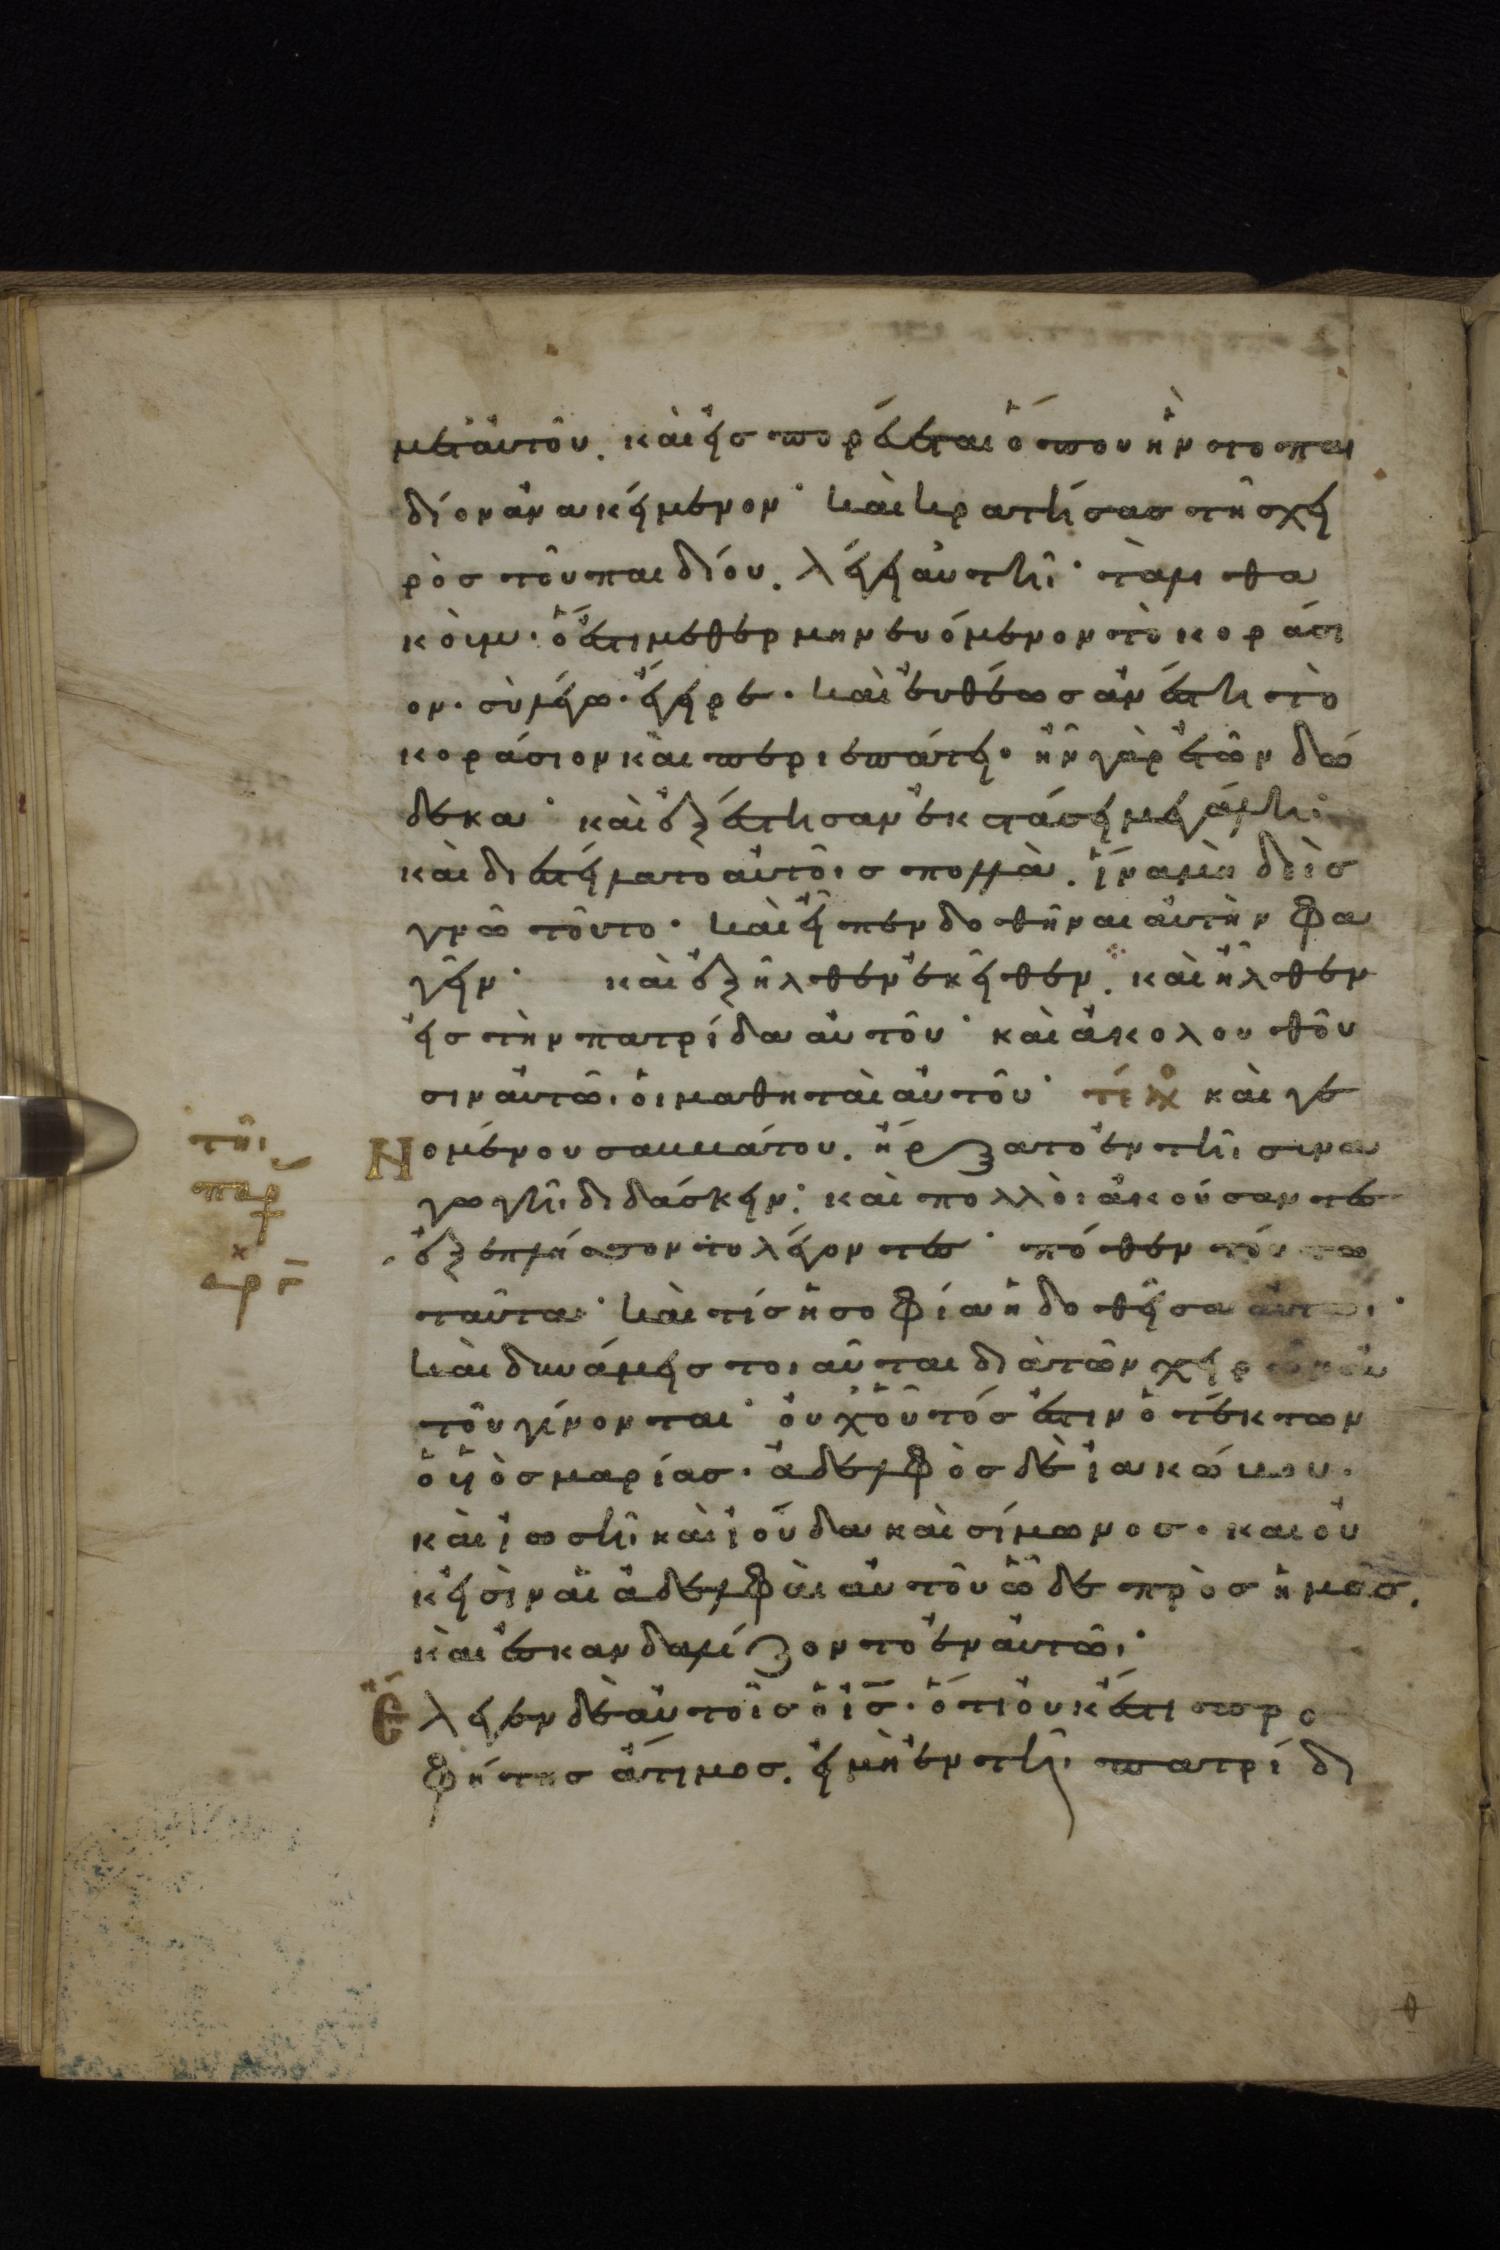 μετ' αὐτοῦ. καὶ εἰσπορεύεται ὅπου ἦν τὸ παι
δίον ἀνακείμενον· καὶ κρατήσας τῆς χει
ρὸς τοῦ παιδίου. λέγει αὐτῆι· ταλιθα
κοὺμι· ὅ ἐστι μεθερμηνευόμενον τὸ κοράσι
ον· σοὶ λέγω· ἔγειρε· καὶ εὐθέως ἀνέστη τὸ
κοράσιον καὶ περιεπάτει· ἦν γὰρ ἐτῶν δώ
δεκα· καὶ ἐξέστησαν ἐκστάσει μεγάλη·
καὶ διεστείλατο αὐτοῖς πολλὰ. ἵνα μὴ δεὶς
γνῶ τοῦτο· καὶ εἶπεν δοθῆναι αὐτὴν φα
γεῖν· καὶ ἐξῆλθεν ἐκεῖθεν. καὶ ἦλθεν
εἰς τὴν πατρίδα αὐτοῦ· καὶ ἀκολουθοῦ
σιν αὐτῶι οἱ μαθηταὶ αὐτοῦ· τέλ καὶ γε
Νομένου σαββάτου. ἤρξατο ἐν τῆι συνα
γωγῆι διδάσκειν· καὶ πολλοὶ ἀκούσαντες
ἐξεπλήσσοντο λέγοντες· πόθεν τούτω
ταῦτα· καὶ τίς ἡ σοφία ἡ δοθεῖσα αὐτῶι·
καὶ δυνάμεις τοιαῦται διὰ τῶν χειρῶν αὐ
τοῦ γίνονται· οὐχ οὗτός ἐστιν ὁ τέκτων
ὁ υἱὸς μαρίας· ἀδελφὸς δὲ ἰακώβου·
καὶ ἰωσῆ καὶ ἰούδα καὶ σίμωνος· καὶ οὐ
κ εἰσὶν αἱ ἀδελφαὶ αὐτοῦ ὧδε πρὸς ἡμᾶς.
καὶ ἐσκανδαλίζοντο ἐν αὐτῶι·
Ἔλεγεν δὲ αὐτοῖς ὁ ις· ὅτι οὐκ ἔστι προ
φήτης ἄτιμος. εἰ μὴ ἐν τῆι πατρίδι
τῆι
παρ
αρχ